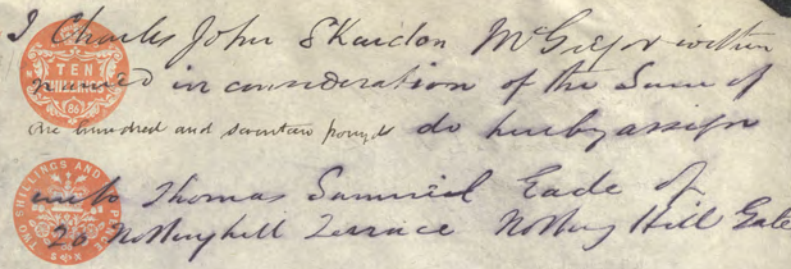 I Charles John Skardon McGregor within
named in consideration of the Sum of
one hundred and seventeen pounds do hereby assign
unto Thomas Samuel Eade of
20 Nottinghill Terrace Notting Hill Gate
TEN
SHILLINGS
TWO SHILLINGS AND
PENCE